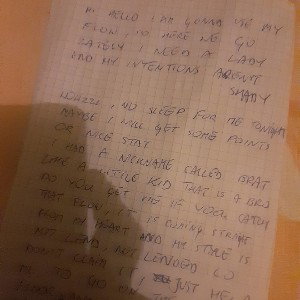 HI HELLO I AM GONNA USE MY
FLOW, SO HERE WE GO
LATELY I NEED A LADY
AND MY INTENTIONS ARENT
SHADY
NO SLEEP FOR ME TONIGHT
MAYBE I WILL GET SOME POINTS
OR NICE STAY
I HAD A NICKNAME CALLED BRAT
LIKE A LITTLE KID THAT IS A
DO YOU GET ME IF YOU CATCH
THAT FLOW, IT IS COMING STRAIT
FROM MY HEART AND MY STYLE IS
NOT LEND, NOT LENDED SO
DON'T CLAIM IT, JUST ME A
ME TO GO ON,